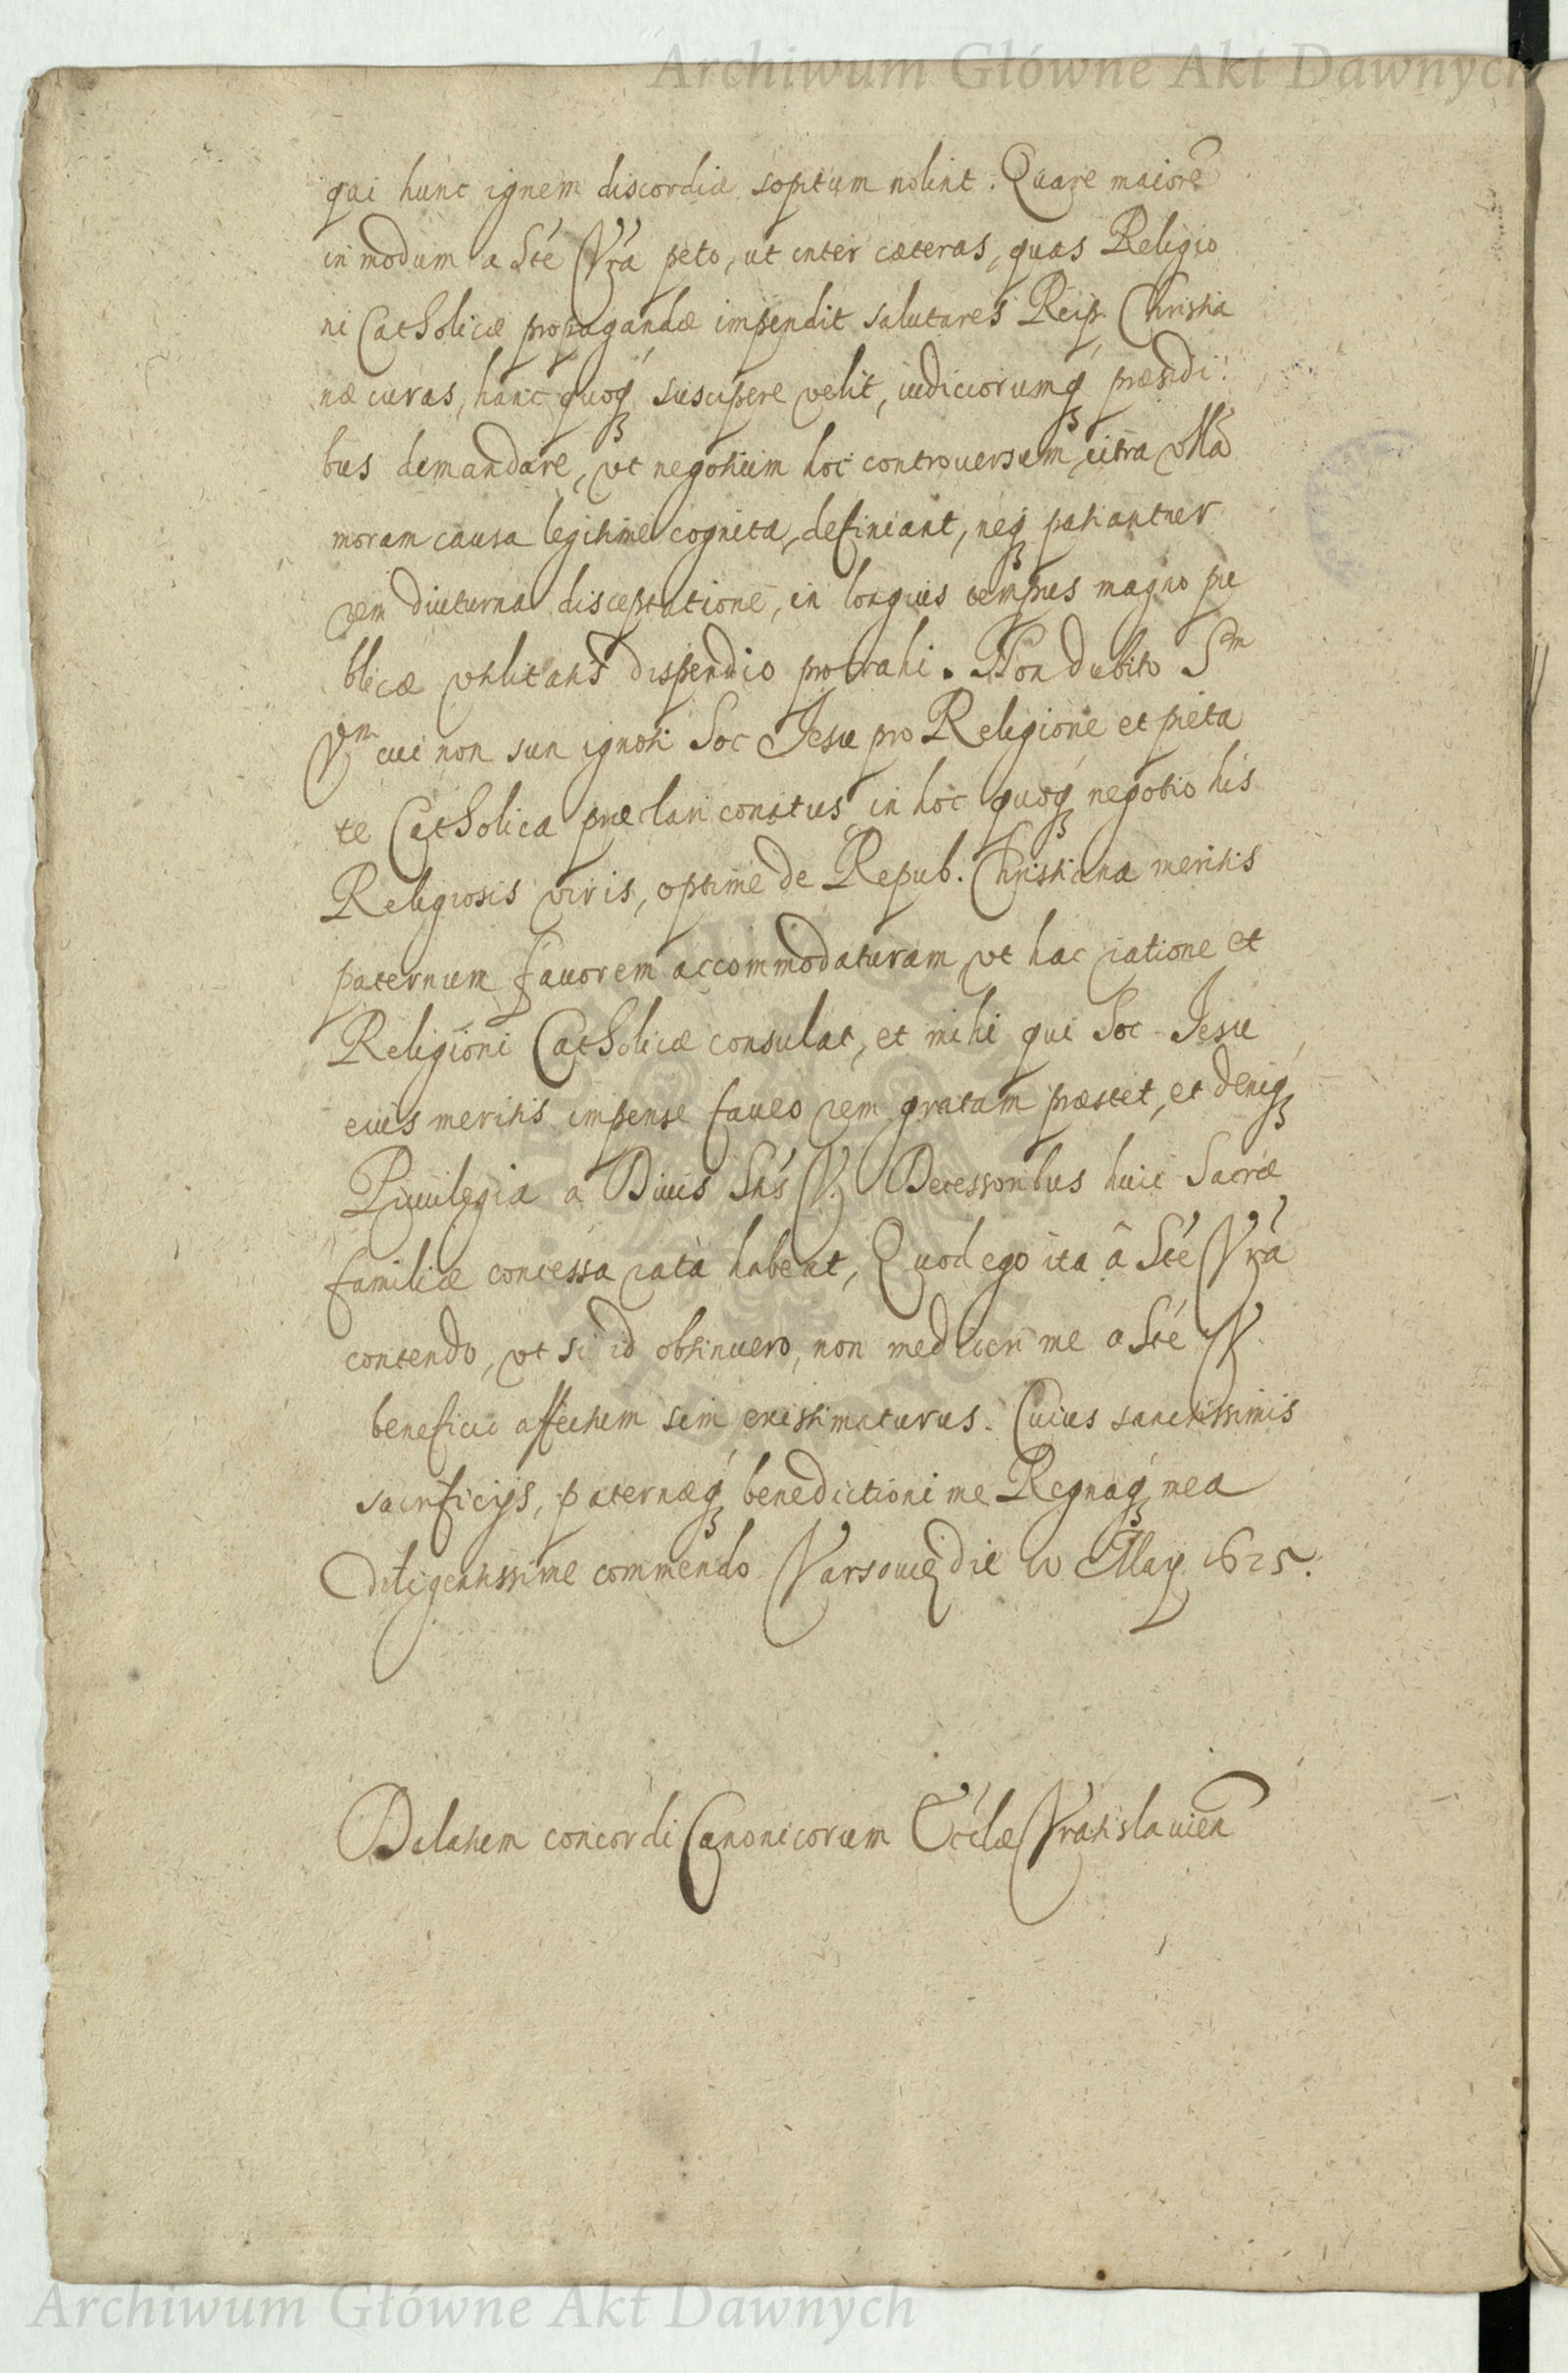 Archiwum Główne Akt Dawnych
qui hunc ignem discordiæ sopitum nolint. Quare maiorē
in modum a Sté Vrá peto, ut inter cæteras, quas Religio
ni Catholicæ propagandæ impendit salutares Reip. Christia
næ curas, hanc quoq; suscipere velit, iudiciorumq; præsidi:
bus demandare, vt negotium hoc controuersum citra vllā
moram causa legitime cognita, definiant, neq; patiantur
rem diuturna disceptatione, in longius tempus magno pu
blicæ vtilitatis dispendio protrahi. Non dubito Sm
Vm cui non sun ignoti Soc Jesu pro Religione et pieta
te Catholica præclari conatus in hoc quoq; negotio his
Religiosis viris, optime de Repub. Christiana meritis
paternum fauorem accommodaturam vt hac ratione et
Religioni Catholicæ consulat, et mihi qui Soc Jesu
eius meritis impense faueo rem gratam præstet, et deniq;
Priuilegia a Diuis Stis V. Decessoribus huic Sacræ
familiæ concessa rata habeat, Quod ego ita â Sté Vrá
contendo, vt si id obtinuero, non mediocri me a Sté V.
beneficio affectum sim existimaturus. Cuius sanctissimis
sacrificijs, paternæq; benedictioni me Regnaq; mea
diligentissime commendo Varsouiæ die 10 May 1625.
Delatem concordi Canonicorum Eccliæ Vratislauien
Archiwum Główne Akt Dawnych